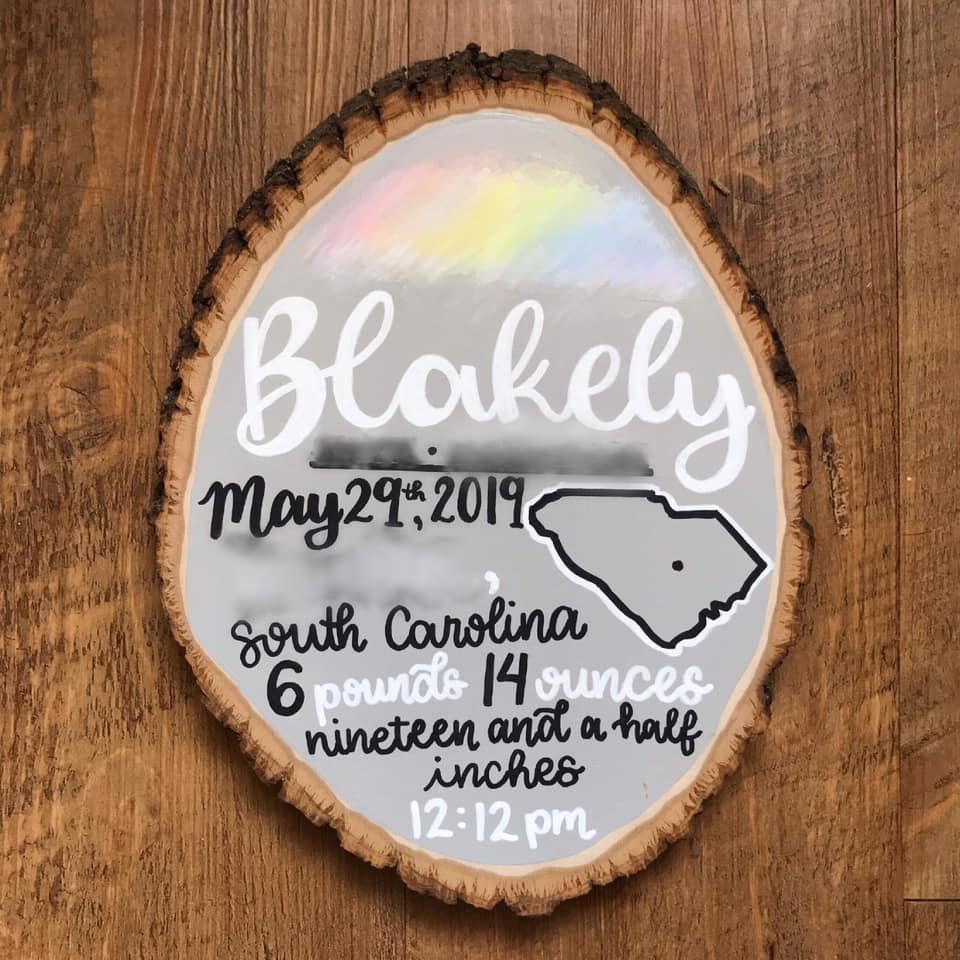 Blakely
May 29th, 2019
South Carolina
6 pounds 14 ounces
nineteen and a half
inches
12:12 pm